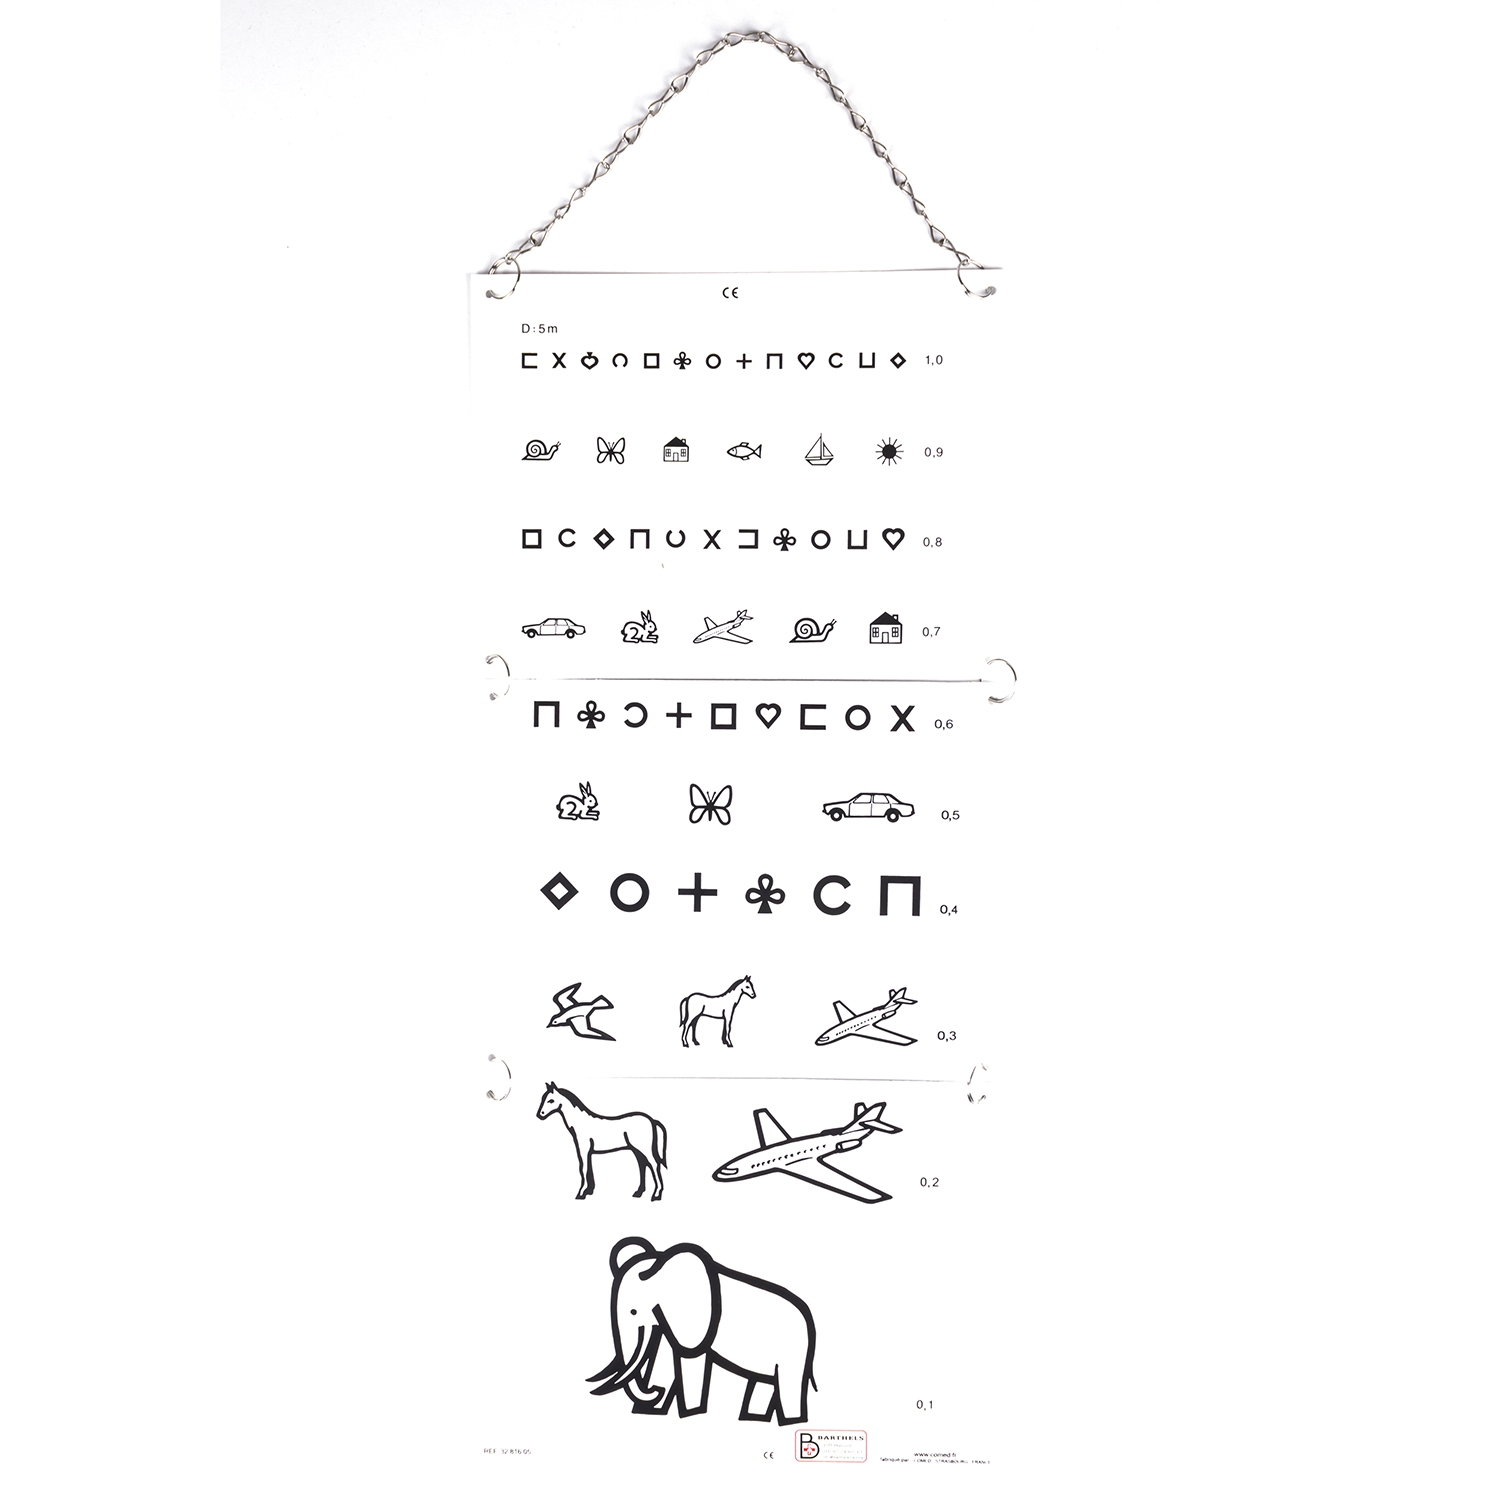 CE
D : 5 m
1,0
0,9
0,8
0,7
0,6
0,5
0,4
0,3
0,2
0,1
REF. 32 816 05
CE
BARTHELS
www.comed.fr
fabriqué par : COMED - STRASBOURG - FRANCE